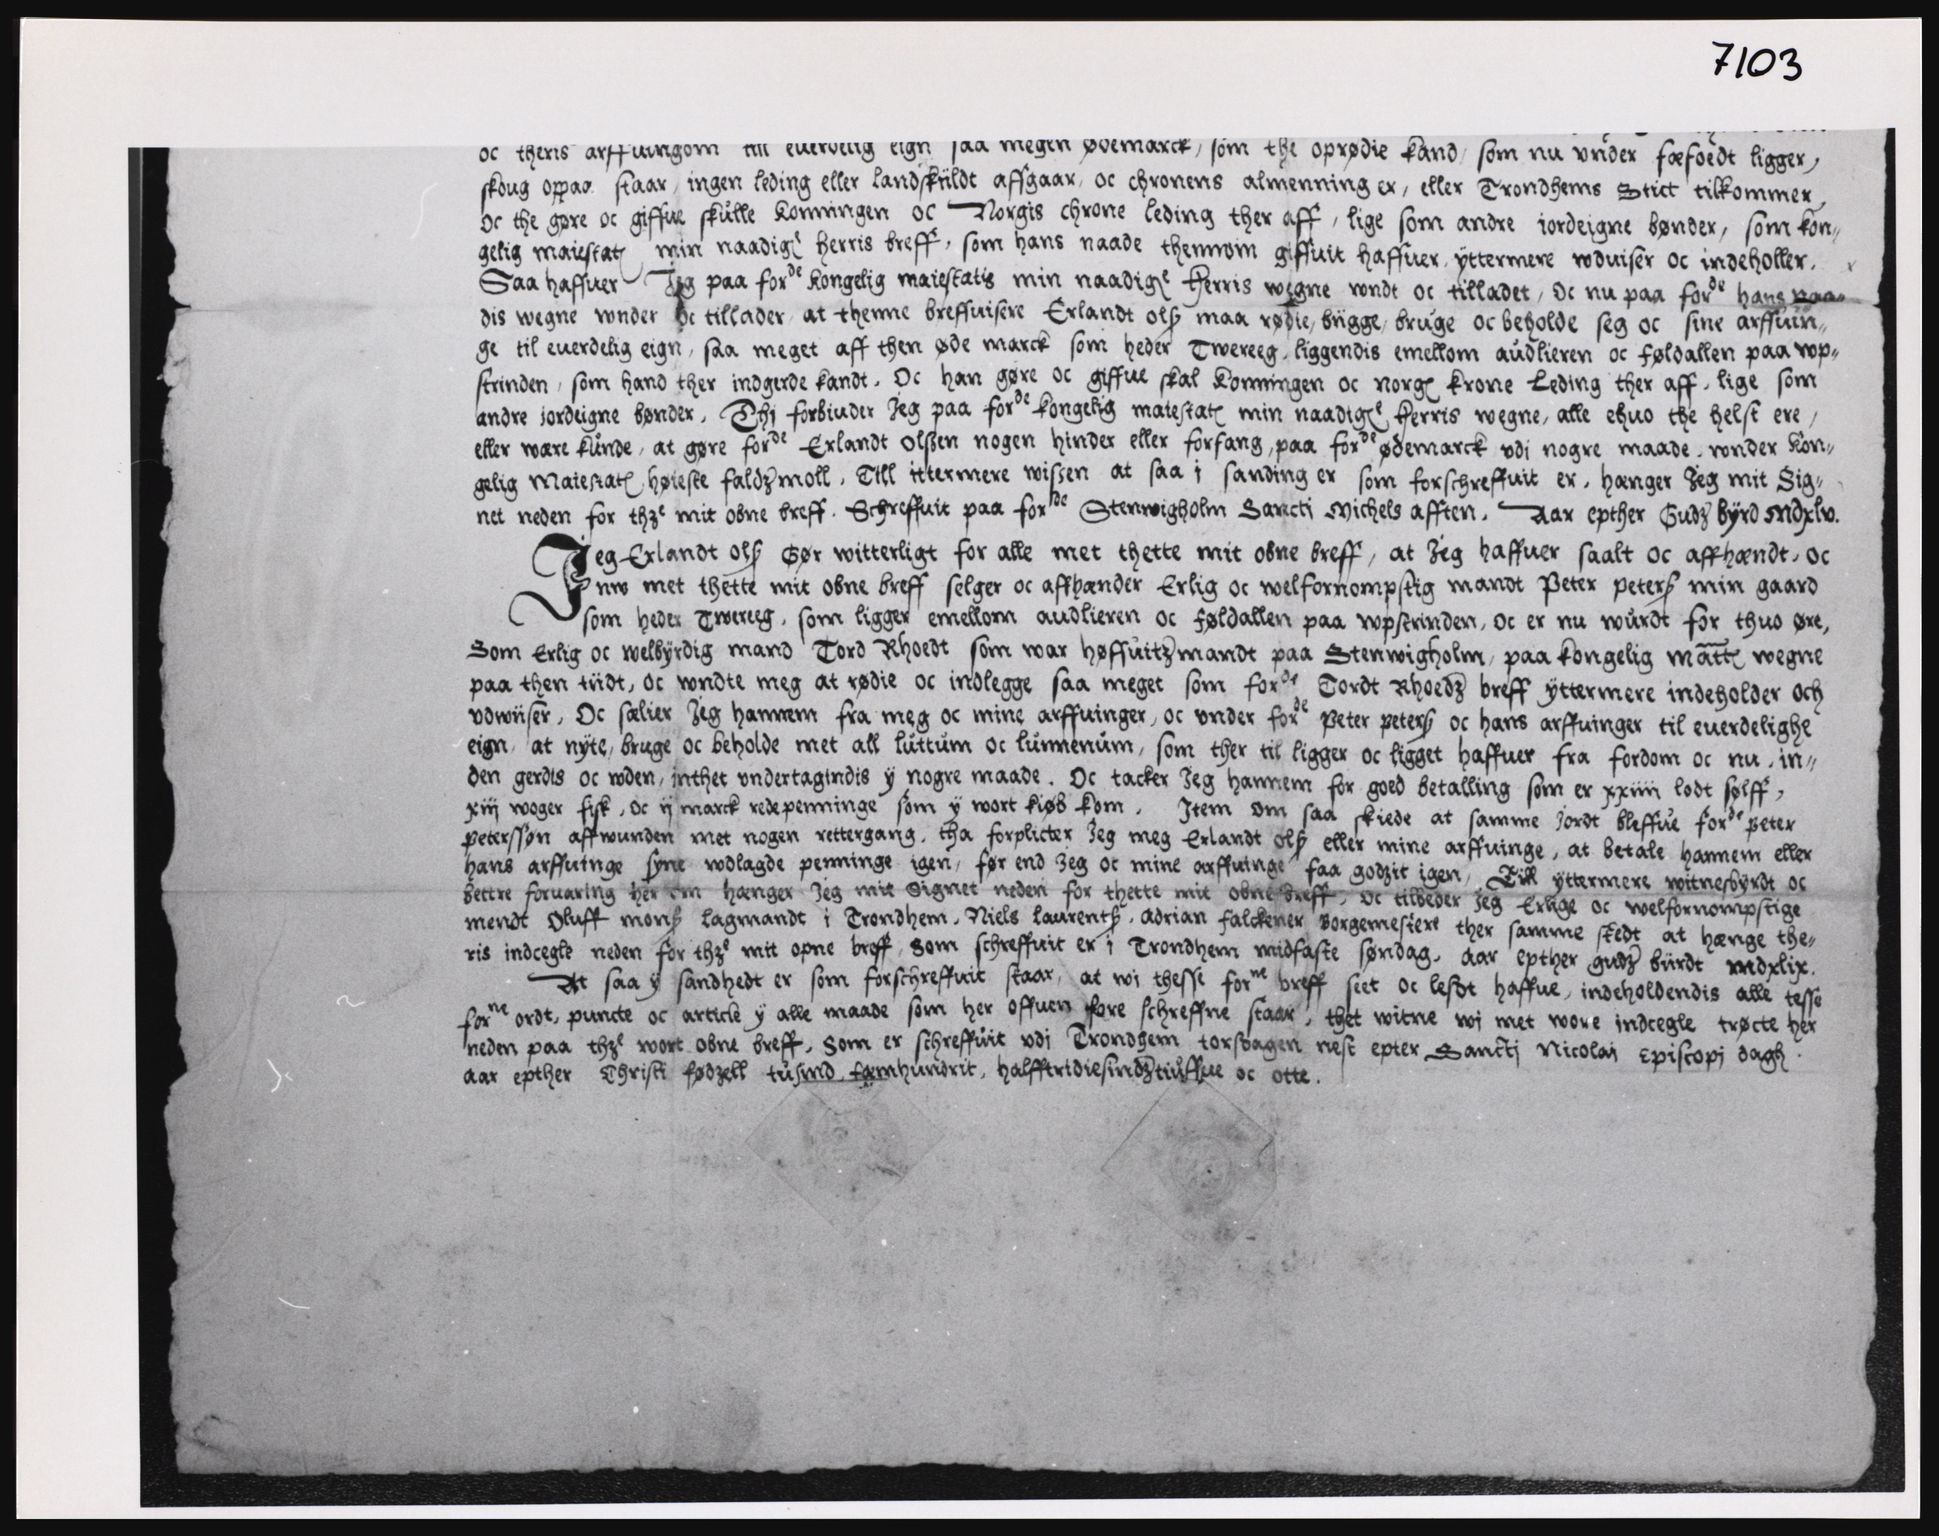 7103
oc theris arffuingom till euerdelig eign saa megen ødemarck, som the oprødie kand, som nu vnder fæfoedt ligger,
skoug oppaa staar, ingen leding eller landskiildt affgaar, oc chronens almenning er, eller Trondhems Stict tilkommer,
Oc the gøre oc giffue skulle Konningen oc Norgis chrone leding ther aff, lige som andre iordeigne bønder, som kon„
gelig maiestatꝭ min naadigꝭᵗ herris breff, som hans naade thennom giffuit haffuer, yttermere wduiser oc indeholler.
Saa haffuer Jeg paa forᵈᵉ kongelig maiestatis min naadigᵉ Herris wegne wndt oc tilladet, Oc nu paa forᵈᵉ hans naa„
dis wegne wnder oc tillader at thenne breffuisere Erlandt olsꝭ maa rødie, bügge, bruge oc beholde seg oc sine arffuin„
ge til euerdelig eign, saa meget aff then øde marck som heder Twereeg, liggendis emellom audlieren oc føldallen paa wp„
strinden, som hand ther indgerde kandt. Oc han gøre oc giffue skal Konningen oc norgꝭ krone Leding ther aff, lige som
andre iordeigne bønder. Thj forbiuder Jeg paa forᵈᵉ kongelig maiestatꝭ min naadigᵉ Herris wegne, alle ehuo the helst ere,
eller wære kunde, at gøre forᵈᵉ Erlandt Olssen nogen hinder eller forfang, paa forᵈᵉ ødemarck vdi nogre maade, wnder kon„
gelig Maiestatꝭ høieste faldzmoll. Till ittermere wissen at saa i sanding er som forschreffuit er, hænger Jeg mit Sig„
net neden for thzᵉ mit obne breff. Schreffuit paa forᵈᵉ Stenwigholm Sancti Michels afften. Aar epther Gudz byrd mdxlv.
Jeg Erlandt olsꝭ Gør witterligt for alle met thette mit obne breff, at Jeg haffuer saalt oc affhændt, oc
nw met thette mit obne breff selger oc affhænder Erlig oc welfornompstig mandt Peter petersꝭ min gaard
som heder Twereeg, som ligger emellom audlieren oc føldallen paa wpstrinden, Oc er nu wurdt for thuo øre,
Som Erlig oc welbyrdig mand Tord Rhoedt som war høffuitzmandt paa Stenwigholm, paa kongelig mattꝭ wegne
paa then tiidt, oc wndte meg at rødie oc indlegge saa meget som forᵈᵉ Tordt Rhoedz breff yttermere indeholder och
vdwiiser. Oc sælier Jeg hannem fra meg oc mine arffuinger, oc vnder forᵈᵉ Peter petersꝭ oc hans arffuinger til euerdelighe
eign, at nyte, bruge oc beholde met all luttum oc lunnenum, som ther til ligger oc ligget haffuer fra fordom oc nu, in„
den gerdis oc wden, inthet vndertagindis y nogre maade. Oc tacker Jeg hannem for goed betalling som er xxiiii lodt sølff,
xiij woger fisk, oc ij marck redepenninge som y wort kiøb kom. Item om saa skiede at samme jordt bleffue forᵈᵉ peter
peterssøn affwunden met nogen rettergang, tha forplicter Jeg meg Erlandt olsꝭ eller mine arffuinge, at betale hannem eller
hans arffuinge syne wdlagde penninge igen, før end Jeg oc mine arffuinge faa godzit igen. Till yttermere witnesbyrdt oc
bettre foruaring her om hænger Jeg mit Signet neden for thette mit obne breff, Oc tilbeder Jeg Erlige oc welfornompstige
mendt Oluff monsꝭ lagmandt i Trondhem, Niels laurentsꝭ, Adrian falckener Borgemestere ther samme stedt at hænge the„
ris indcegle neden for thzᵉ mit opne breff, Som schreffuit er i Trondhem midfaste søndag. aar epther gudz biirdt mdxlix.
At saa y sandhedt er som forschreffuit staar, at wi thesse forⁿᵉ breff seet oc lesdt haffue, indeholdendis alle tesse
forⁿᵉ ordt, puncte oc article y alle maade som her offuen fore schreffne staar, thet witne wj met wore indcegle trøcte her
neden paa thzᵉ wort obne breff, Som er schreffuit vdi Trondhem torsdagen nest epter Sanctj Nicolai Episcopj dagh.
aar epther Christi fødzell tusind, fæmhundrit, halfftridiesindztiuffue oc otte.